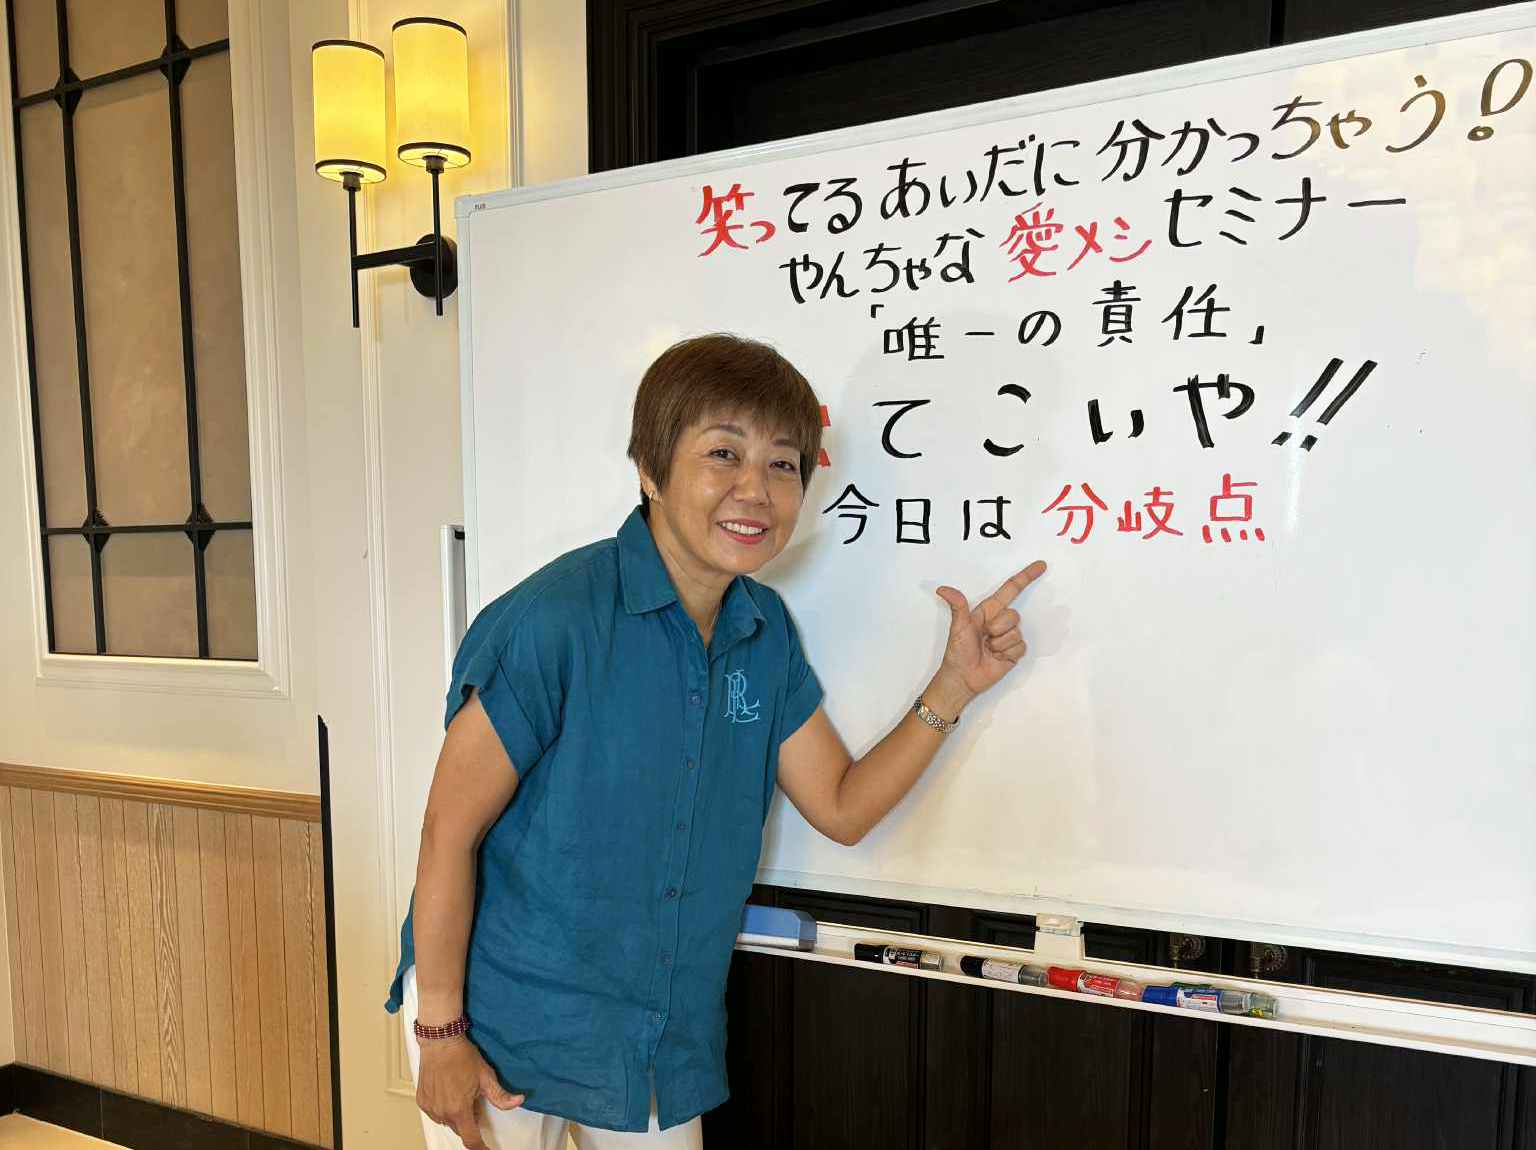 PLUS
笑ってるあいだに分かっちゃう!
やんちゃな愛メシセミナー
「唯一の責任」
てこいや!!
今日は分岐点